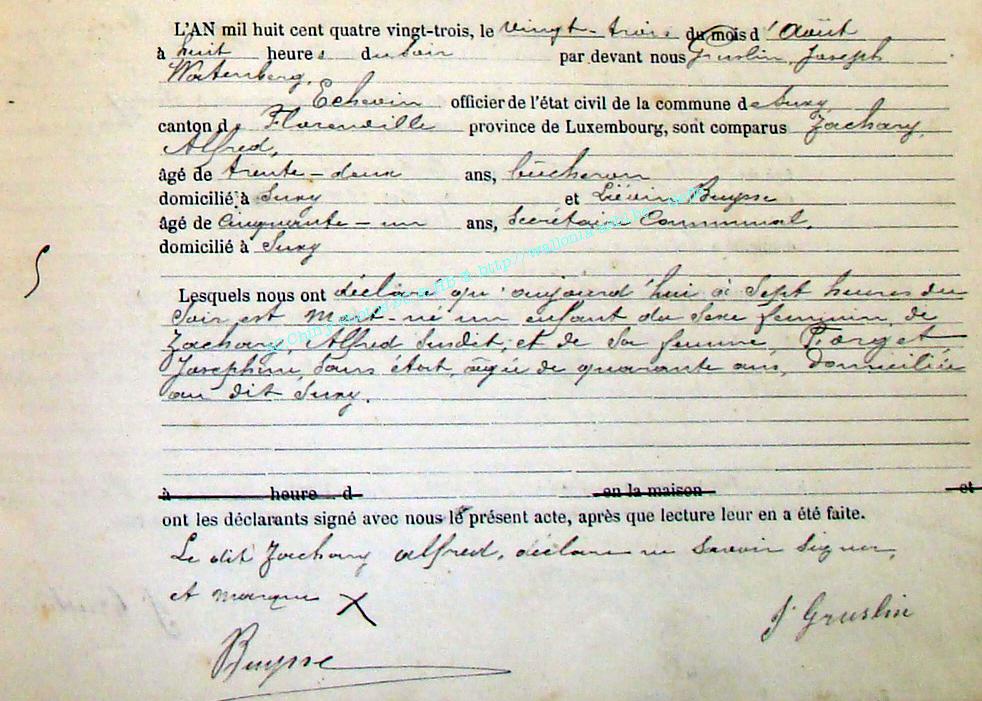 L'AN mil huit cent quatre vingt-trois, le vingt-trois du mois d'Août
à huit heures du soir par devant nous Gruslin, Joseph
Watenberg,
Echevin officier de l'état civil de la commune de Suxy
canton de Florenville province de Luxembourg, sont comparus Zachary,
Alfred,
âgé de trente-deux ans, bûcheron
domicilié à Suxy et Liévin Buysse
âgé de cinquante-un ans, Secrétaire Communal,
domicilié à Suxy
Lesquels nous ont déclaré qu'aujourd'hui à Sept heures du
Soir est Mort-né un enfant du Sexe féminin, de
Zachary, Alfred Susdit, et de Sa femme, Forget
Josephine, Sans état, agée de quarante ans, Domiciliée
au dit Suxy.
à heure d en la maison et
ont les déclarants signé avec nous le présent acte, après que lecture leur en a été faite.
Le dit Zachary Alfred, déclare ne Savoir Signer,
et marque X
J. Gruslin
Buysse